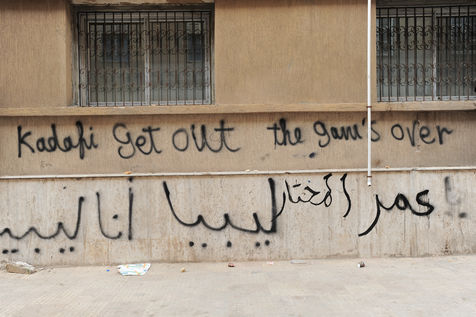 Kadafi Get out the gam's over
عمر المختار ليبيا أنا ليبي